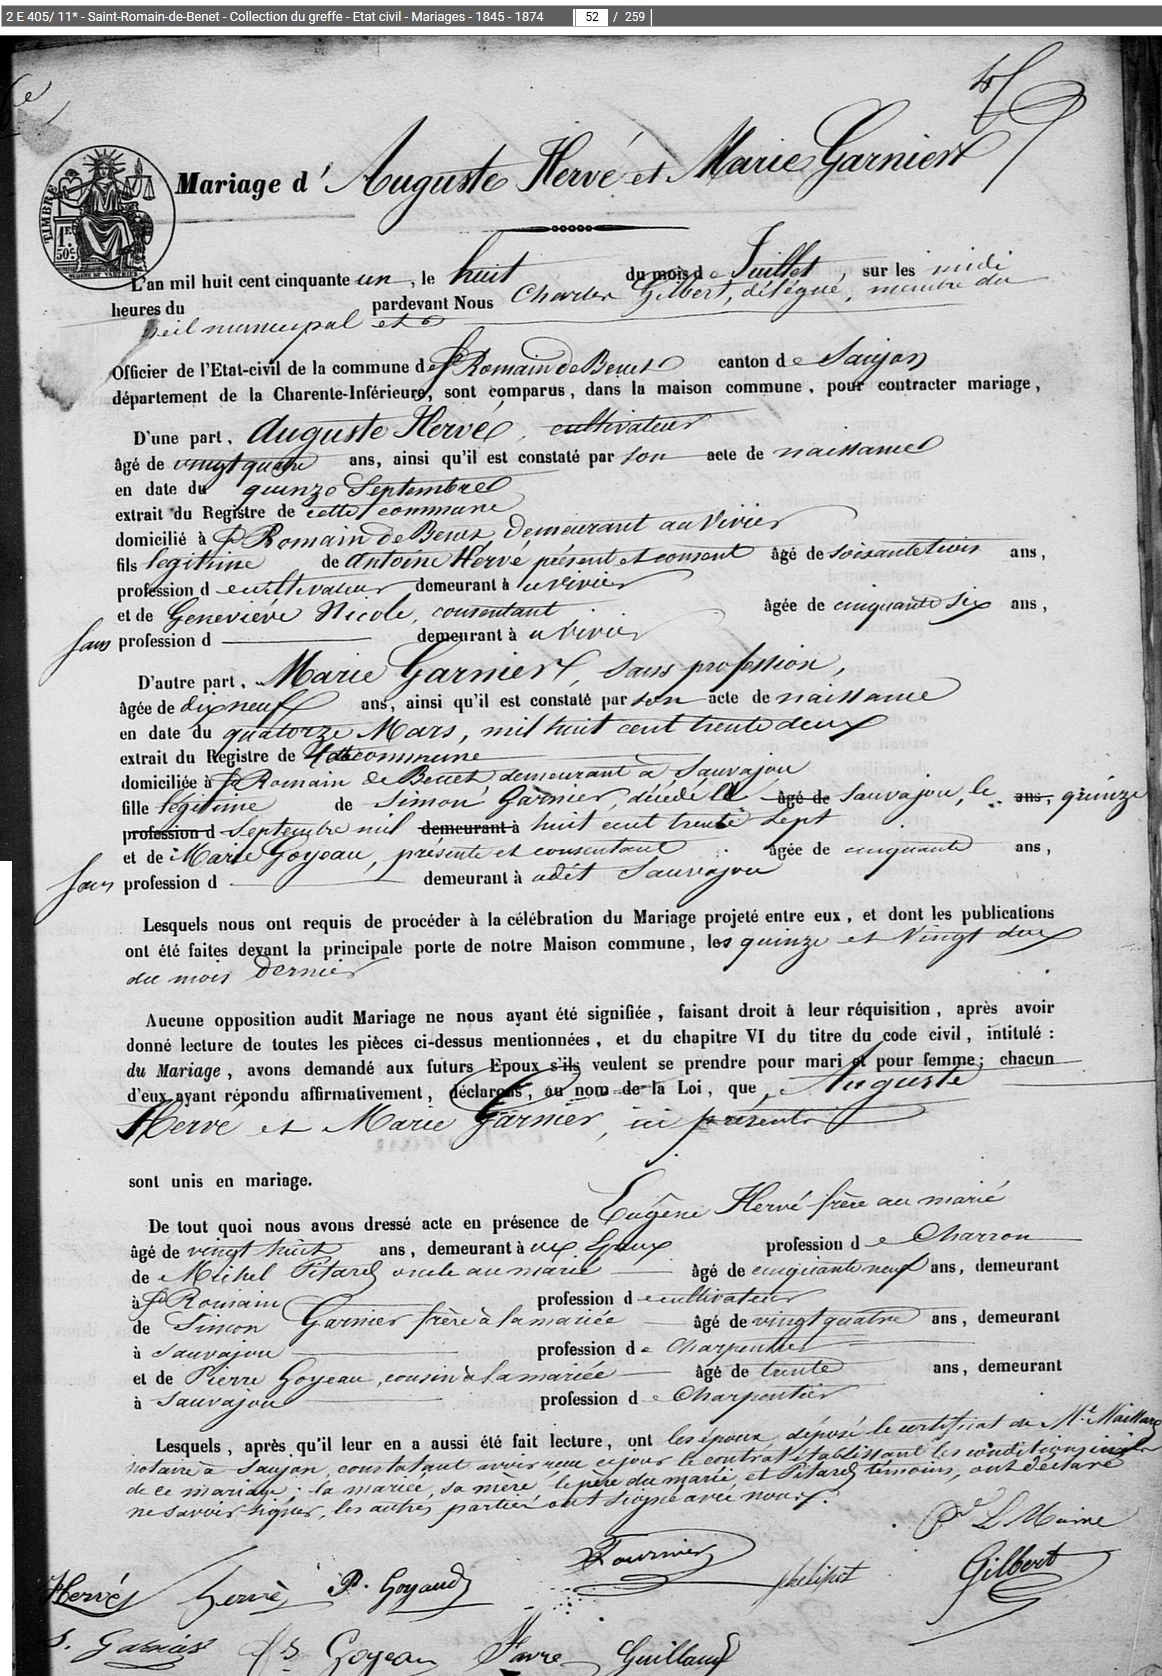 2 E 405/ 11* - Saint-Romain-de-Benet - Collection du greffe - Etat civil - Mariages - 1845 - 1874 52 / 259
TIMBRE
1 F.
50 c.
Mariage d'Auguste Hervé et Marie Garnier
L'an mil huit cent cinquante un, le huit du mois de Juillet, sur les midi
heures du pardevant Nous Charles Gilbert, délégué, membre du
seil municipal et
Officier de l'Etat-civil de la commune de St Romain de Benet canton de Saujon
département de la Charente-Inférieure, sont comparus, dans la maison commune, pour contracter mariage,
D'une part, Auguste Hervé, cultivateur
âgé de vingt quatre ans, ainsi qu'il est constaté par son acte de naissance
en date du quinze Septembre
extrait du Registre de cette commune
domicilié à St Romain de Benet, demeurant au Vivier
fils légitime de Antoine Hervé présent et consent âgé de soixante trois ans,
profession de cultivateur demeurant à u Vivier
et de Geneviève Nicole, consentant âgée de cinquante six ans,
Sans profession d demeurant à u Vivier
D'autre part, Marie Garnier, sans profession,
âgée de dix neuf ans, ainsi qu'il est constaté par son acte de naissance
en date du quatorze Mars, mil huit cent trente deux
extrait du Registre de commune
domiciliée à St Romain de Benet demeurant à Sauvajou
fille légitime de Simon Garnier décédé à âgé de Sauvajou, le ans, quinze
profession d Septembre mil demeurant à huit cent trente sept
et de Marie Goyeau, présente et consentant âgée de cinquante ans,
Sans profession d demeurant à udit Sauvajou
Lesquels nous ont requis de procéder à la célébration du Mariage projeté entre eux, et dont les publications
ont été faites devant la principale porte de notre Maison commune, les quinze et Vingt deux
du mois dernier
Aucune opposition audit Mariage ne nous ayant été signifiée, faisant droit à leur réquisition, après avoir
donné lecture de toutes les pièces ci-dessus mentionnées, et du chapitre VI du titre du code civil, intitulé :
du Mariage, avons demandé aux futurs Epoux s'ils veulent se prendre pour mari et pour femme; chacun
d'eux ayant répondu affirmativement, déclarons, au nom de la Loi, que Auguste
Hervé et Marie Garnier, ici présents
sont unis en mariage.
De tout quoi nous avons dressé acte en présence de Eugène Hervé frère au marié
âgé de vingt huit ans, demeurant à ux profession de Charron
de Michel Pitard oncle au marié âgé de cinquante neuf ans, demeurant
à St Romain profession de cultivateur
de Simon Garnier frère à la mariée âgé de vingt quatre ans, demeurant
à Sauvajou profession de Charpentier
et de Pierre Goyeau, cousin à la mariée âgé de trente ans, demeurant
à Sauvajou profession de Charpentier
Lesquels, après qu'il leur en a aussi été fait lecture, ont les époux déposé le certificat de Me Maillard
notaire à Saujon, constatant avoir reçu ce jour le contrat établissant les conditions civiles
de ce mariage : la mariée, sa mère, le père du marié et Pitard témoins, ont déclaré
ne savoir signer, les autres parties ont signé avec nous.
Pr Le Maire
Hervé Hervé P. Goyaud Fournier phelipot Gilbert
S. Garnier Goyeau Favre Guillaud